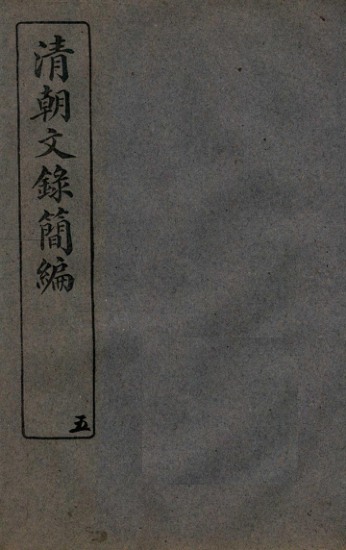 清朝文錄簡編
五